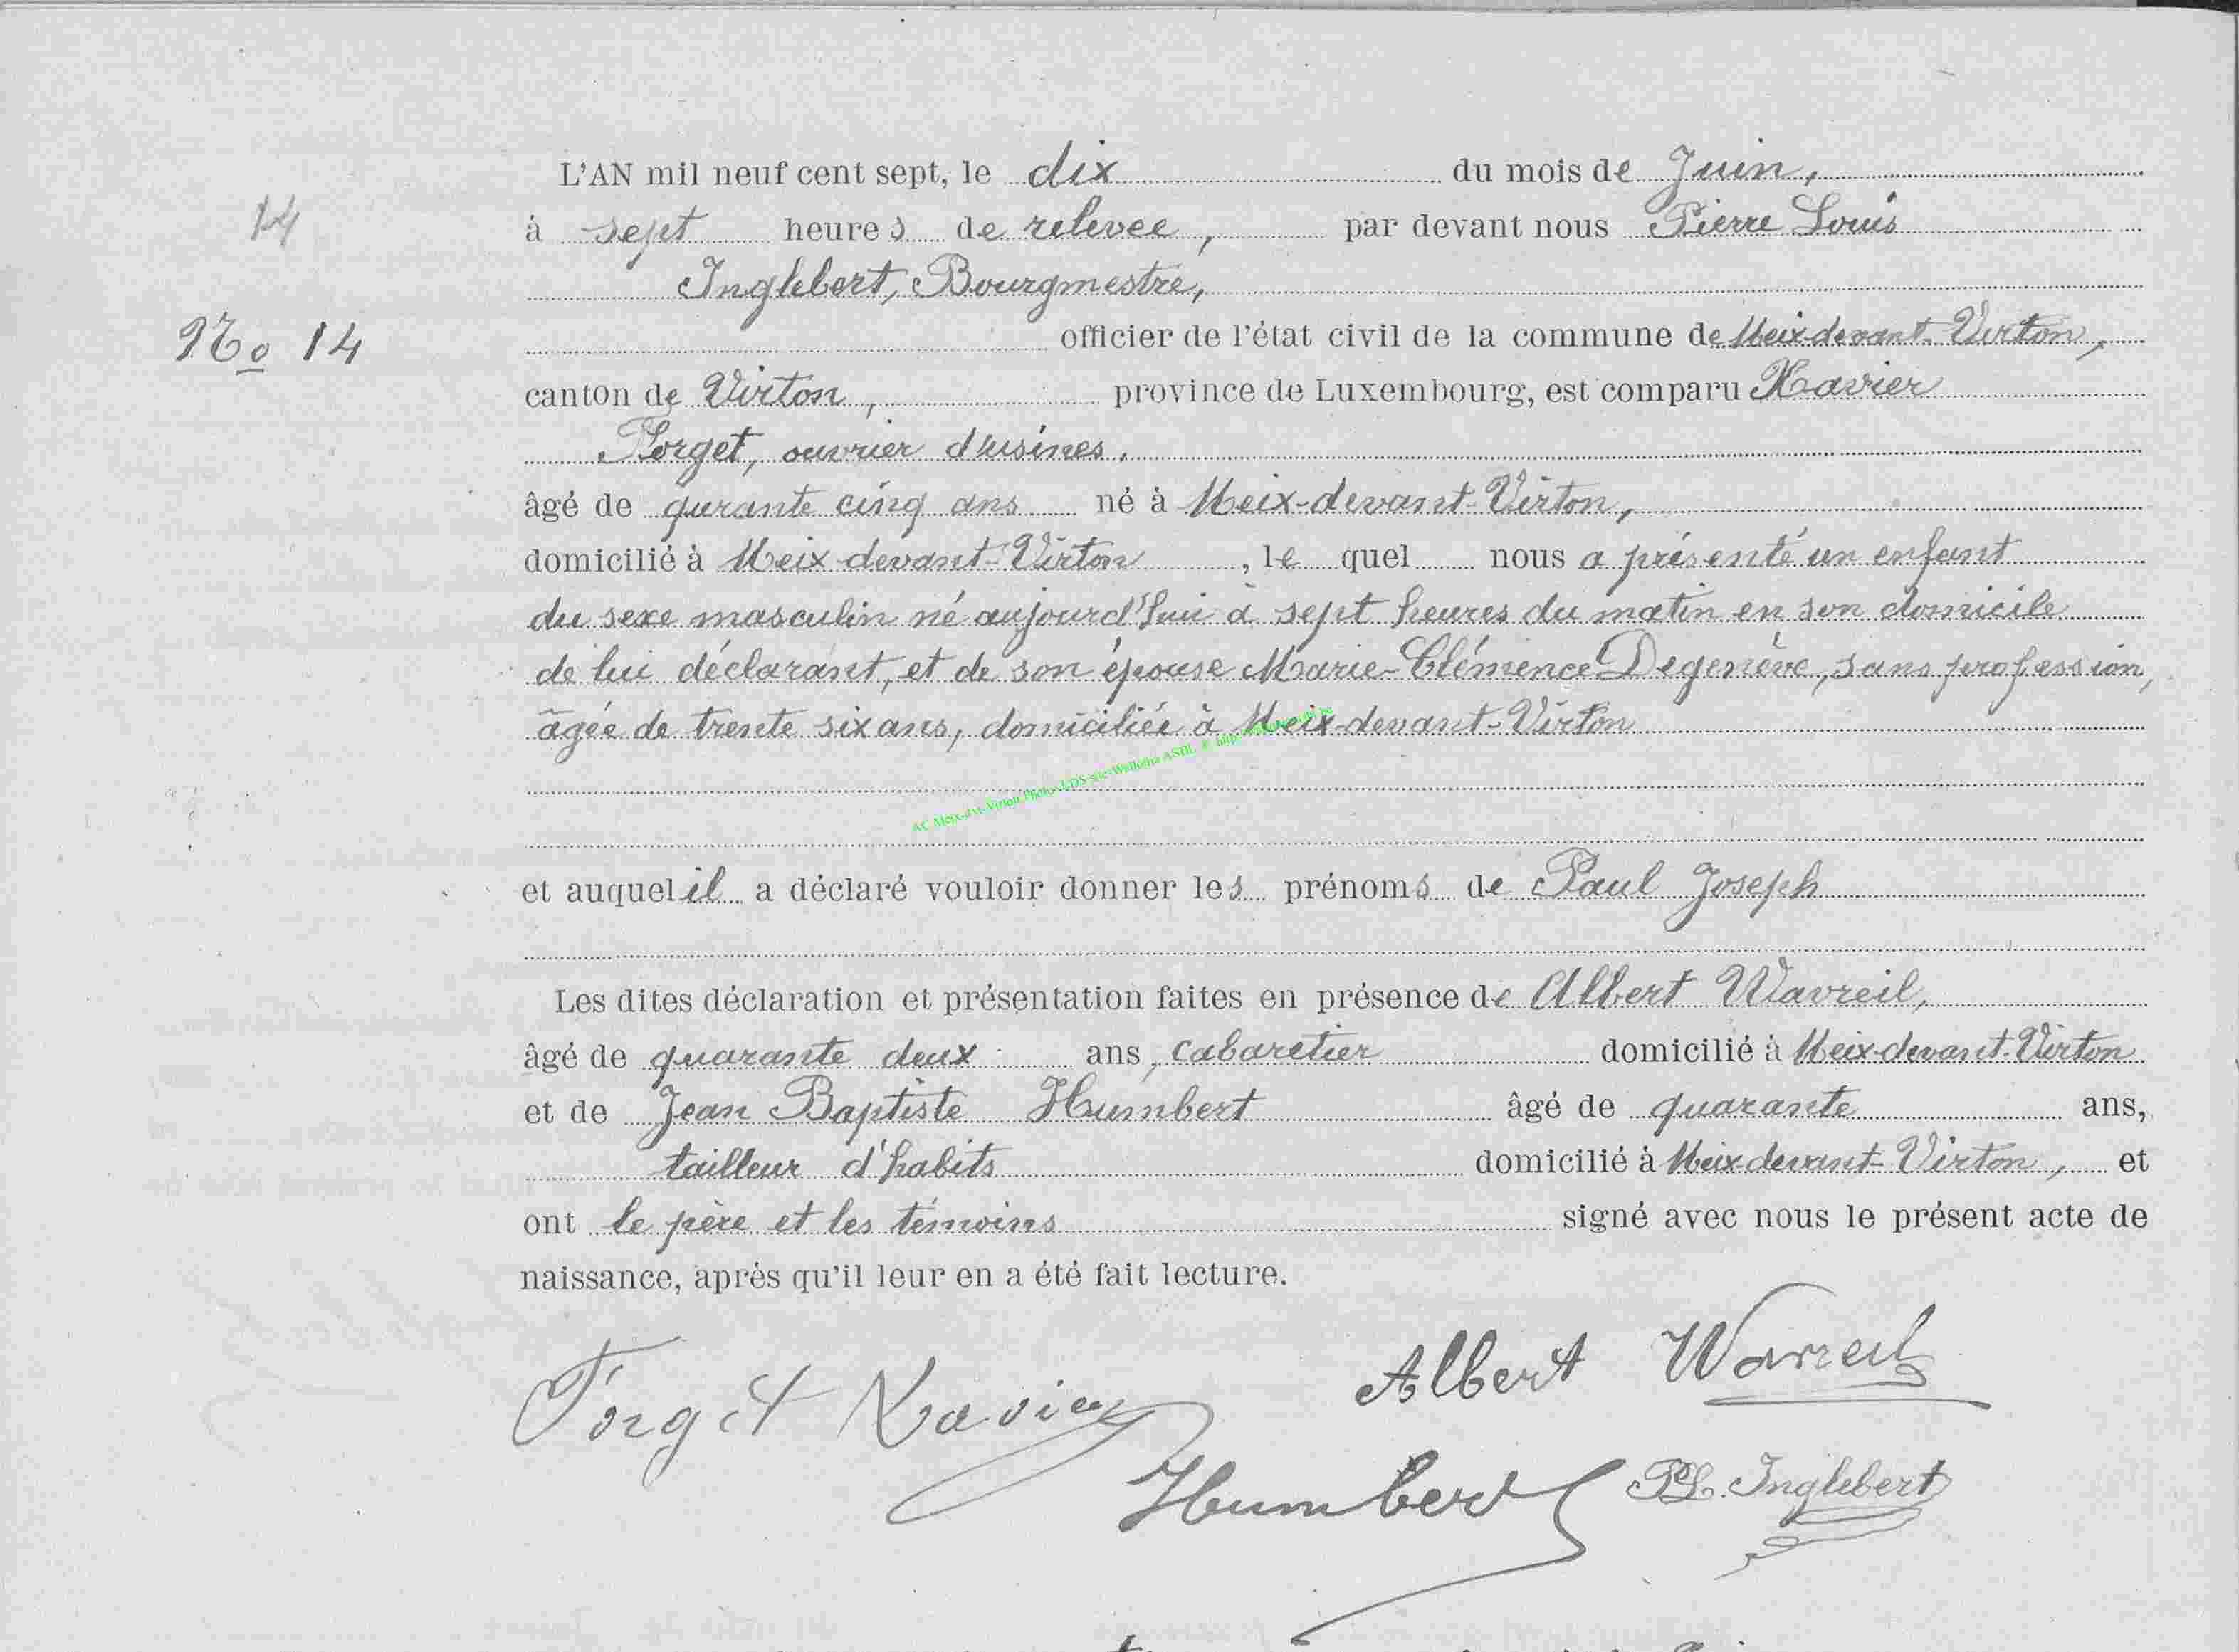 14
L'AN mil neuf cent sept, le dix du mois de Juin,
à sept heures de relevee, par devant nous Pierre Louis
Inglebert, Bourgmestre,
No 14
officier de l'état civil de la commune de Meix-devant-Virton,
canton de Virton, province de Luxembourg, est comparu Xavier
Forget, ouvrier d'usines,
âgé de qurante cinq ans né à Meix-devant-Virton,
domicilié à Meix-devant-Virton, le quel nous a présenté un enfant
du sexe masculin né aujourd'hui à sept heures du matin en son domicile
de lui déclarant, et de son épouse Marie-Clémence Degenève, sans profession,
âgée de trente six ans, domiciliée à Meix-devant-Virton
et auquel il a déclaré vouloir donner les prénoms de Paul Joseph
Les dites déclaration et présentation faites en présence de Albert Wavreil,
âgé de quarante deux ans, cabaretier domicilié à Meix-devant-Virton
et de Jean Baptiste Humbert âgé de quarante ans,
tailleur d'habits domicilié à Meix-devant-Virton, et
ont le père et les témoins signé avec nous le présent acte de
naissance, après qu'il leur en a été fait lecture.
Forget Xavier Albert Wavreil
Humbert PL. Inglebert